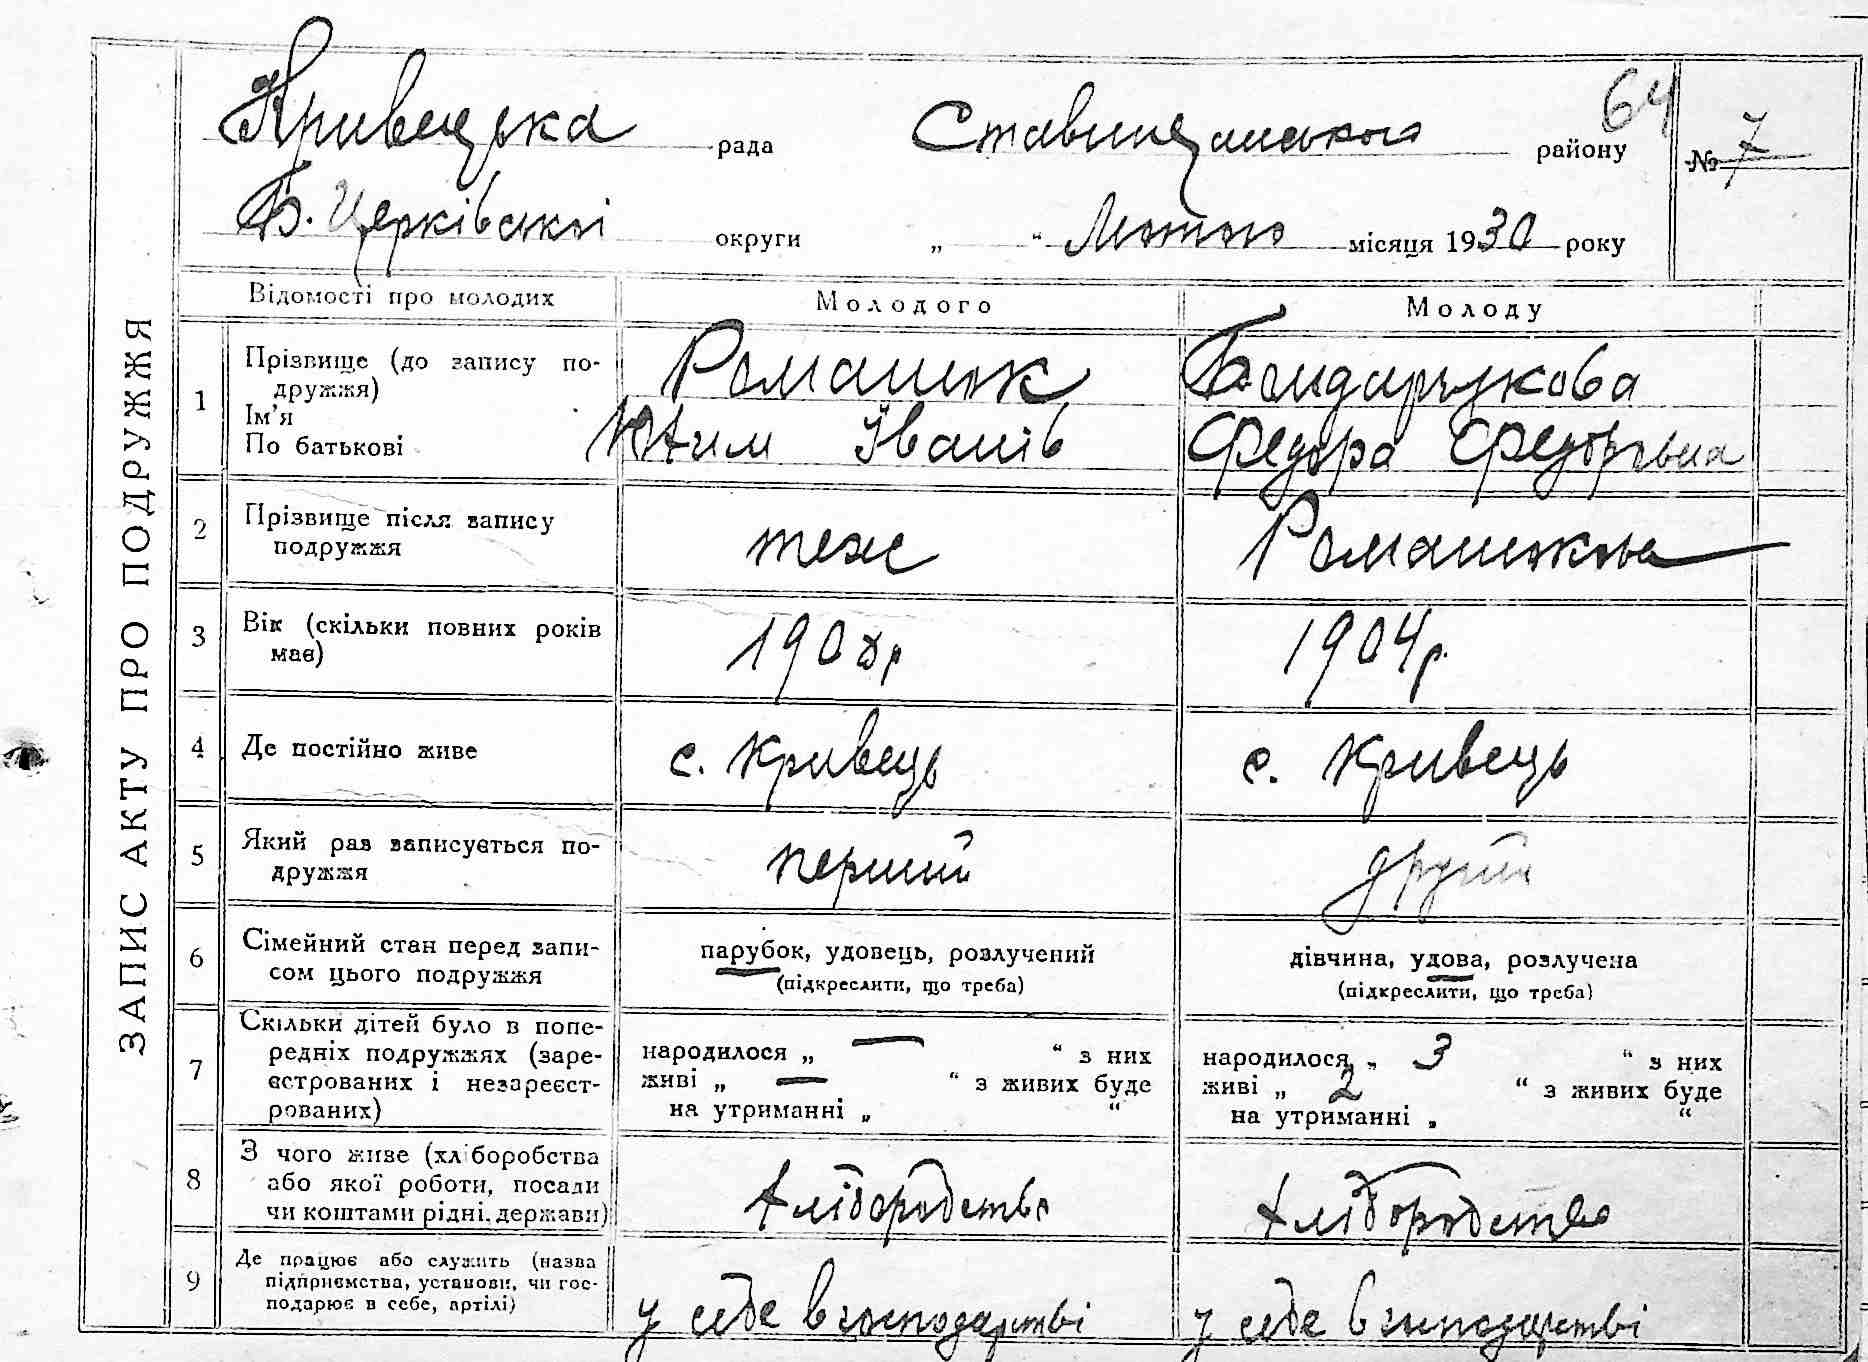 64
Кривецька рада Ставищанського району № 7
Б. Церківської округи „ “ Лютого місяця 1930 року
ЗАПИС АКТУ ПРО ПОДРУЖЖЯ
Відомості про молодих Молодого Молоду
1 Прізвище (до запису по-
дружжя) Романюк Бондарчукова
Ім’я
По батькові Юхим Іванів Федора Федоровна
2 Прізвище після запису
подружжя теж Романюкова
3 Вік (скільки повних років
має) 1908р 1904р.
4 Де постійно живе с. Кривець с. Кривець
5 Який раз записується по-
дружжя перший другий
6 Сімейний стан перед запи-
сом цього подружжя
парубок, удовець, розлучений
(підкреслити, що треба)
дівчина, удова, розлучена
(підкреслити, що треба)
7 Скільки дітей було в попе-
редніх подружжях (заре-
єстрованих і незареєст-
рованих)
народилося „ — “ з них
живі „ — “ з живих буде
на утриманні „ “
народилося „ 3 “ з них
живі „ 2 “ з живих буде
на утриманні „ “
8 З чого живе (хліборобства
або якої роботи, посади
чи коштами рідні, держави)
хліборобство хліборобство
9 Де працює або служить (назва
підприємства, установи, чи гос-
подарює в себе, артілі)
у себе в господарстві у себе в господарстві